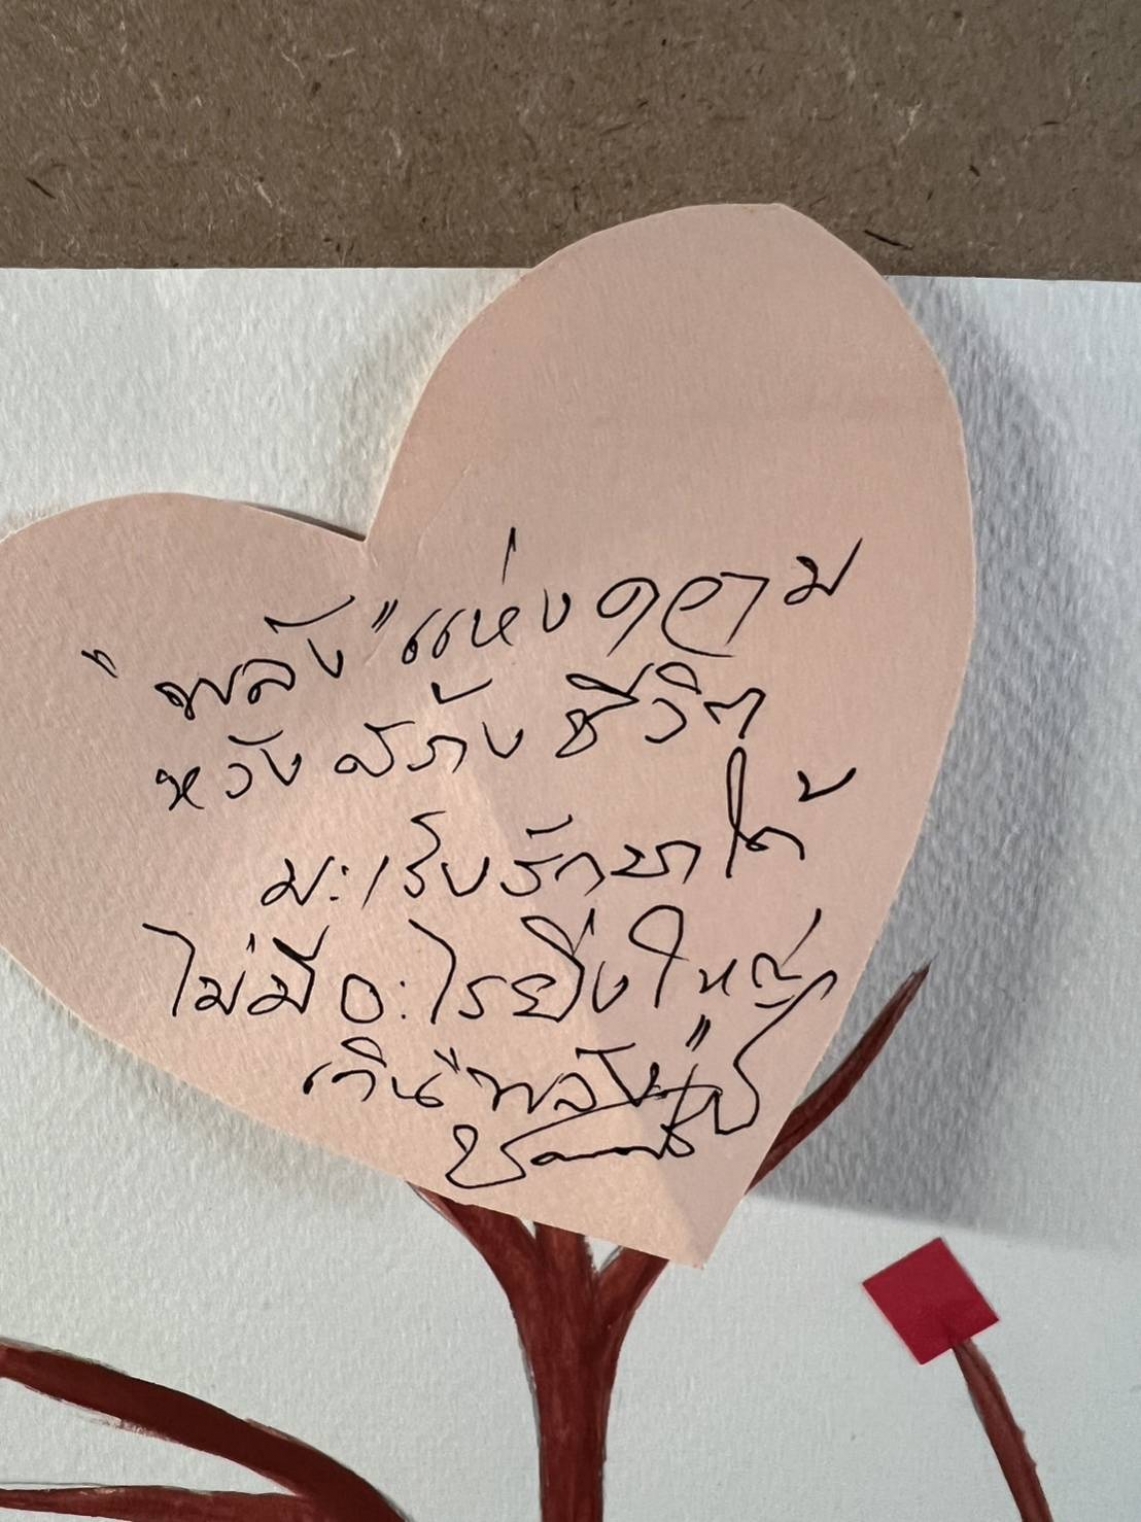 "พลัง" แห่งความ
หวังสร้างชีวิต
มะเร็งรักษาได้
ไม่มีอะไรยิ่งใหญ่
เกิน "พลังใจ"